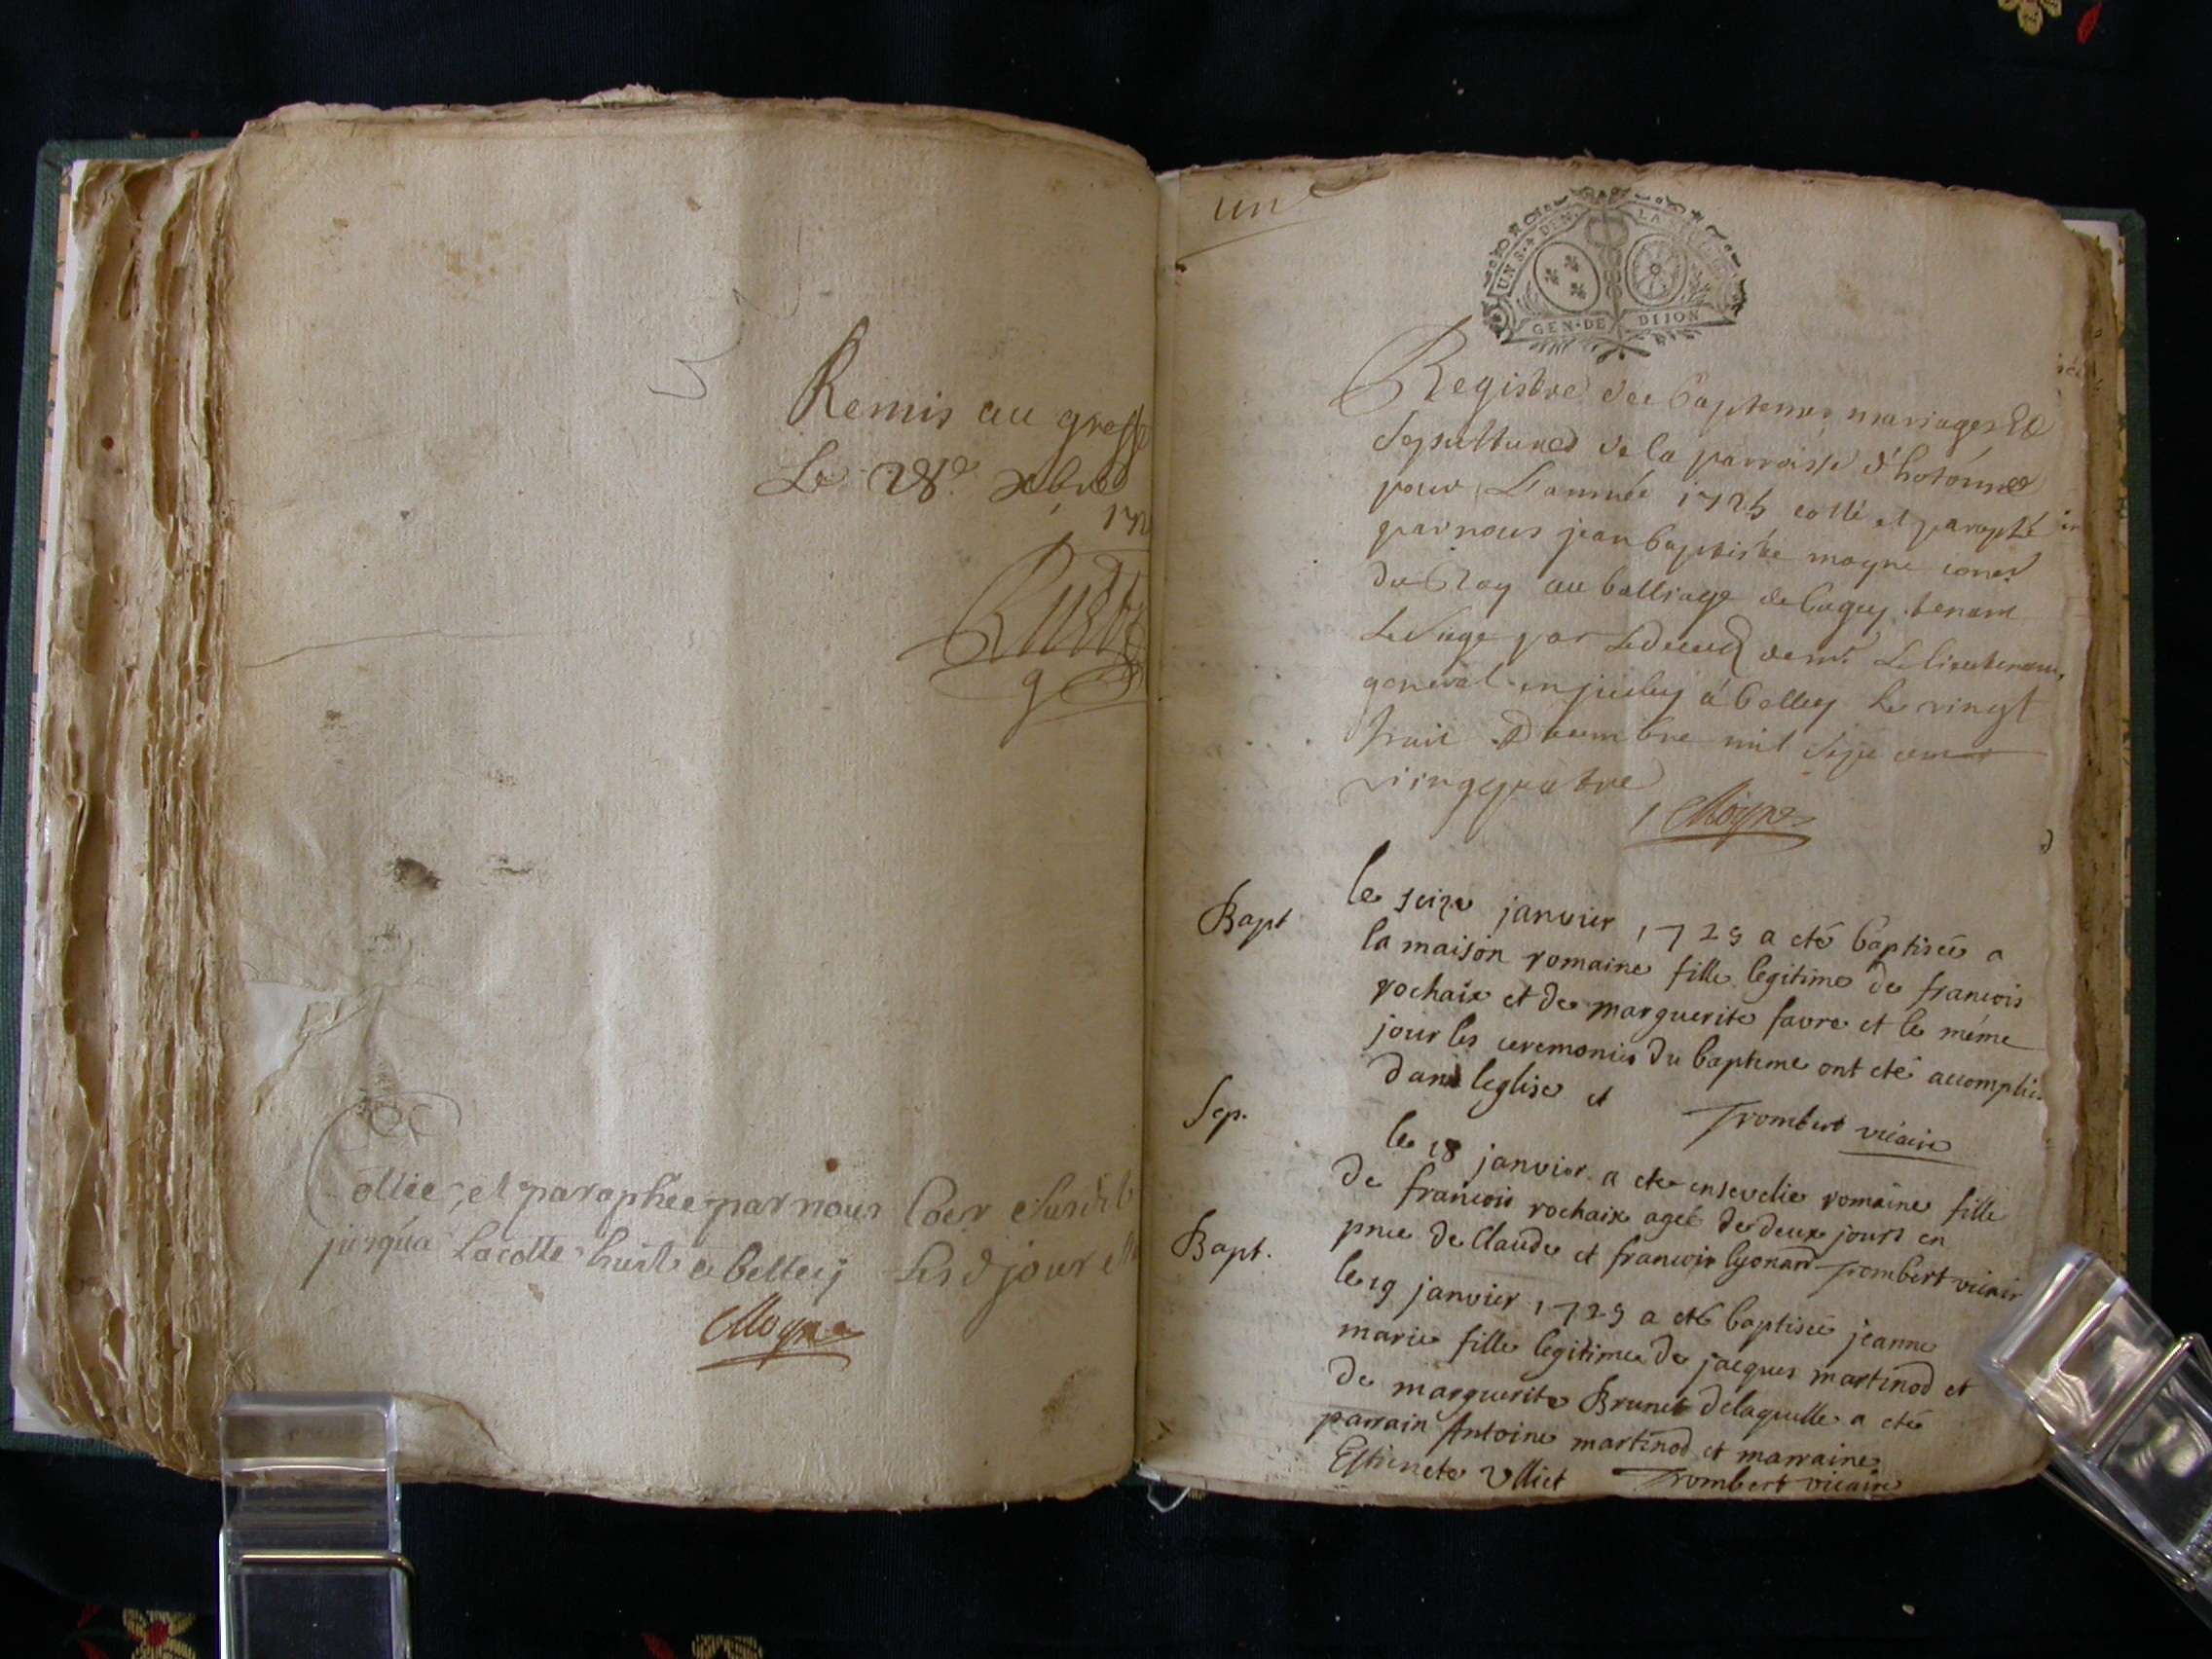 Remis au greffe
Le 28e xbre
172
Cottée, et paraphée par nous Coer susdit
jusqu'a La cotte huit a belley Les d jour et
Moyne
un
UN S. 4 DEN. LA
GEN. DE DIJON
Registre des baptemes mariages Et
Sepultures de la parroisse d'hotonnes
pour L'année 1725 cotté et paraphé
par nous jean baptiste moyne coner
du Roy au balliage de bugey tenant
Le siege par Le deced de mr Le lieutenant
general en juley á belley Le vingt
huit Decembre mil sept cent
vingt quatre
Moyne
Bapt le seize janvier 1725 a eté baptisée a
la maison romaine fille legitime de francois
rochaix et de marguerite favre et le méme
jour les ceremonies du bapteme ont eté accomplies
dans leglise et Trombert vicaire
Sep. le 18 janvier a ete ensevelie romaine fille
de francois rochaix ageé de deux jours en
pnce de Claude et francois lyonard Trombert vicair
Bapt. le 19 janvier 1725 a eté baptisée jeanne
marie fille legitime de jacques martinod et
de marguerite Brunet delaquelle a eté
parrain Antoine martinod et marraine
Estienete Vlliet Trombert vicaire